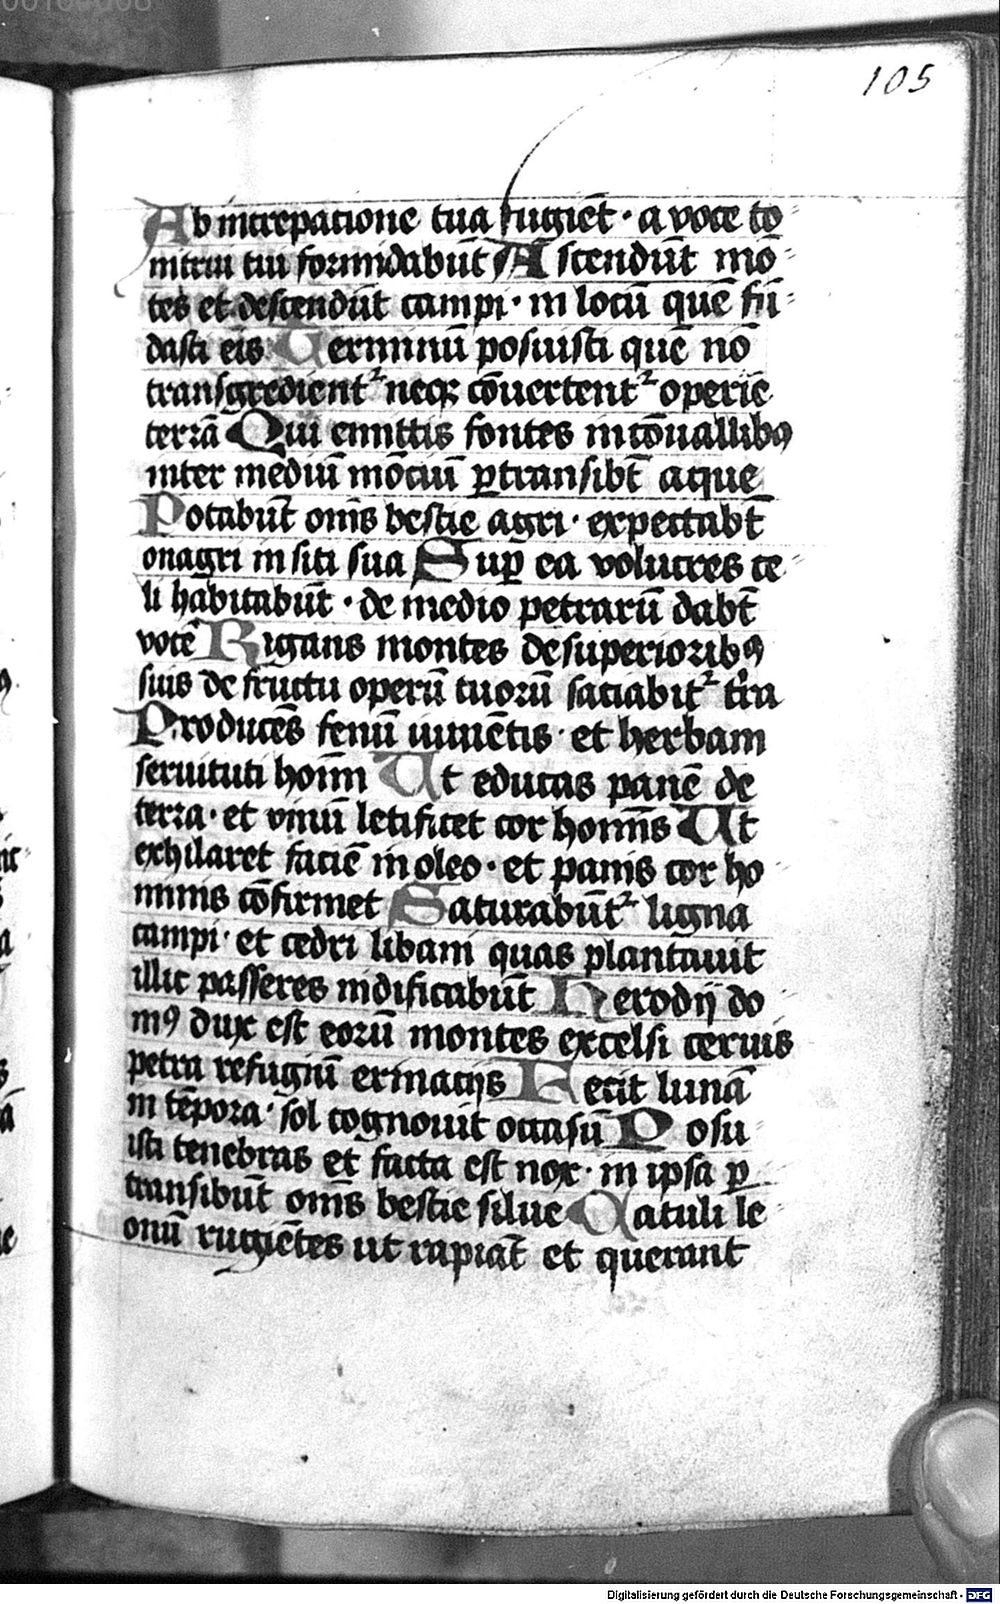 105
Ab increpatione tua fugiēt · a voce to
nitrui tui formidabūt Ascendūt mō
tes et descendūt campi · in locū quē fū
dasti eis Terminū posuisti quē nō
transgredientᷣ neqꝫ cōuertentᷣ operiē
terrā Qui emittis fontes in cōuallibꝯ
inter mediū mōciū ꝑtransibt̄ aque
Potabūt om̄s bestie agri · expectabt̄
onagri in siti sua Suꝑ ea volucres ce
li habitabūt · de medio petrarū dabt̄
vocē Rigans montes de superioribꝯ
suis de fructu operū tuorū saciabitᷣ tr̄ra
Producēs fenū iumētis · et herbam
seruituti hoīm Ut educas panē de
terra · et vinū letificet cor hom̄s Ut
exhilaret faciē in oleo · et panis cor ho
minis cōfirmet Saturabūtᷣ ligna
campi · et cedri libani quas plantauit
illic passeres nidificabūt Herodij do
mꝯ dux est eorū montes excelsi ceruis
petra refugiū ermacijs Fecit lunā
in tēpora · sol cognouit occasū Posu
isti tenebras et facta est nox · in ipsa ꝑ
transibūt om̄s bestie silue Catuli le
onū rugiētes ut rapiāt et querant
Digitalisierung gefördert durch die Deutsche Forschungsgemeinschaft - DFG